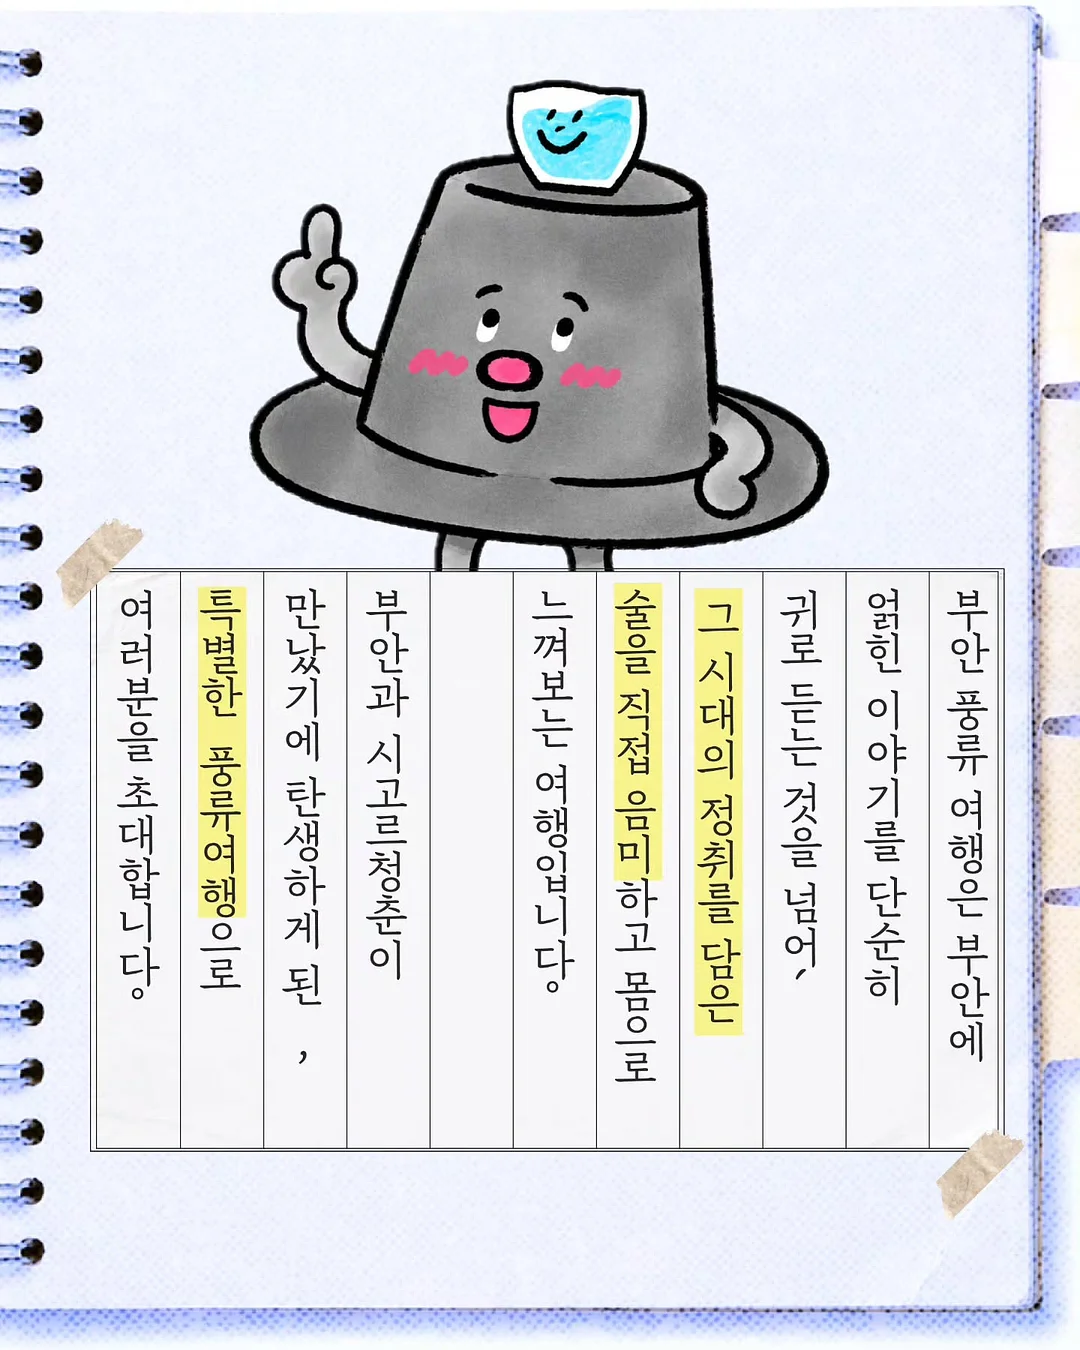 부안 풍류 여행은 부안에
얽힌 이야기를 단순히
귀로 듣는 것을 넘어,
그 시대의 정취를 담은
술을 직접 음미하고 몸으로
느껴보는 여행입니다.
부안과 시고르청춘이
만났기에 탄생하게 된 ,
특별한 풍류여행으로
여러분을 초대합니다.